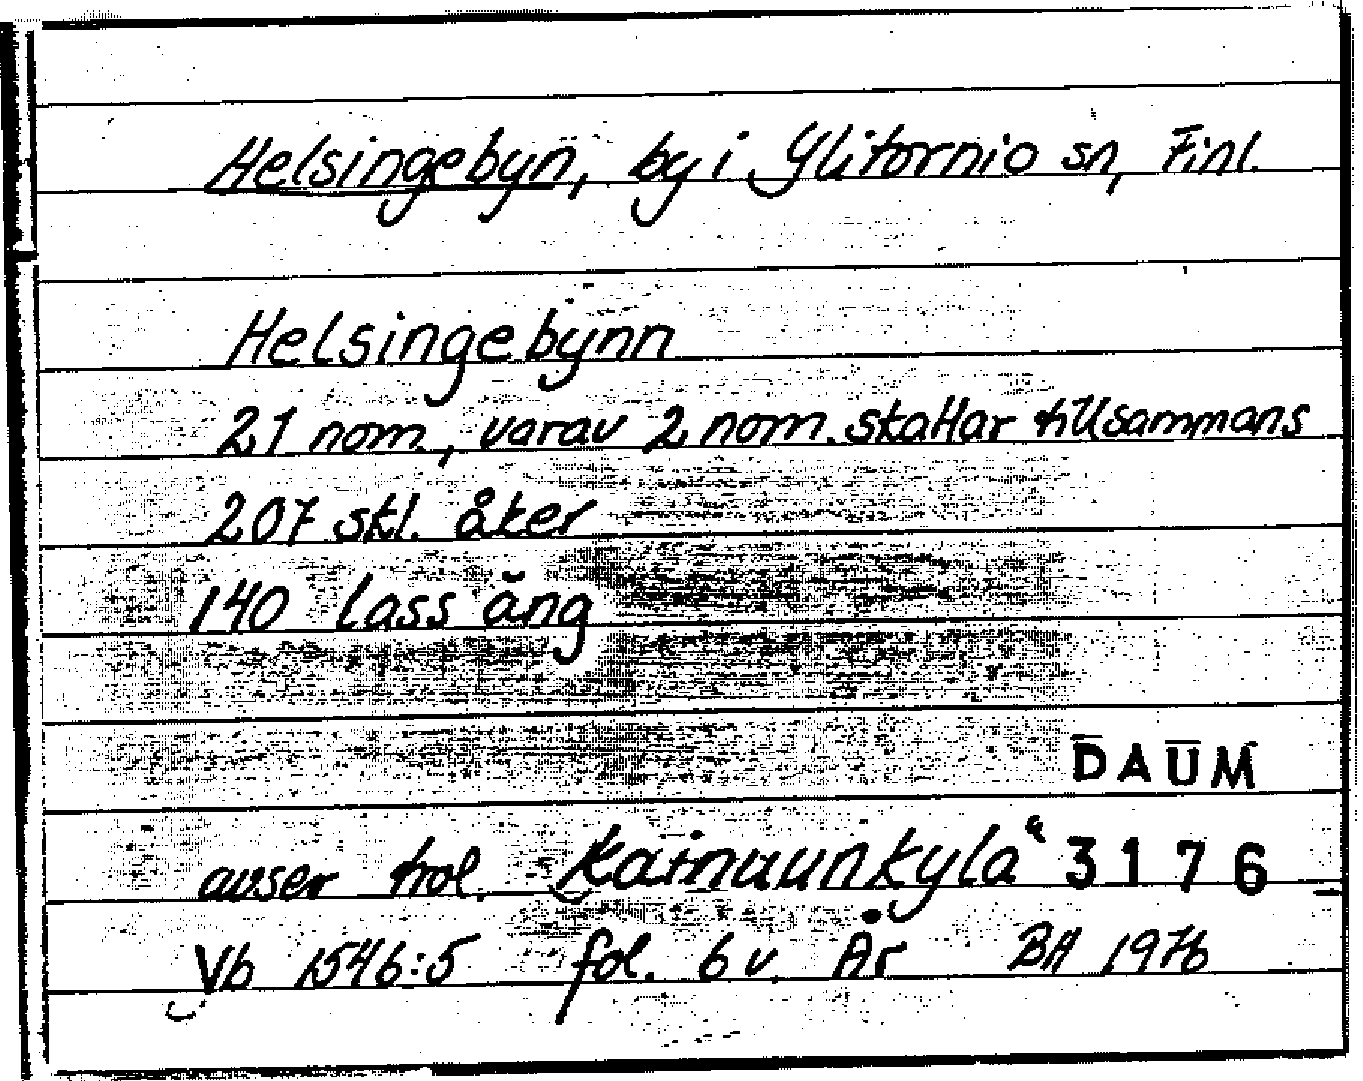 Helsingebyn, by i Ylitornio sn, Finl.
Helsingebynn
21 nom., varav 2 nom. skattar tillsammans
207 skl. åker
140 lass äng
DAUM
avser trol. Kainuunkylä 3176
Vb 1546:5 fol. 6 v. Är BA 1976